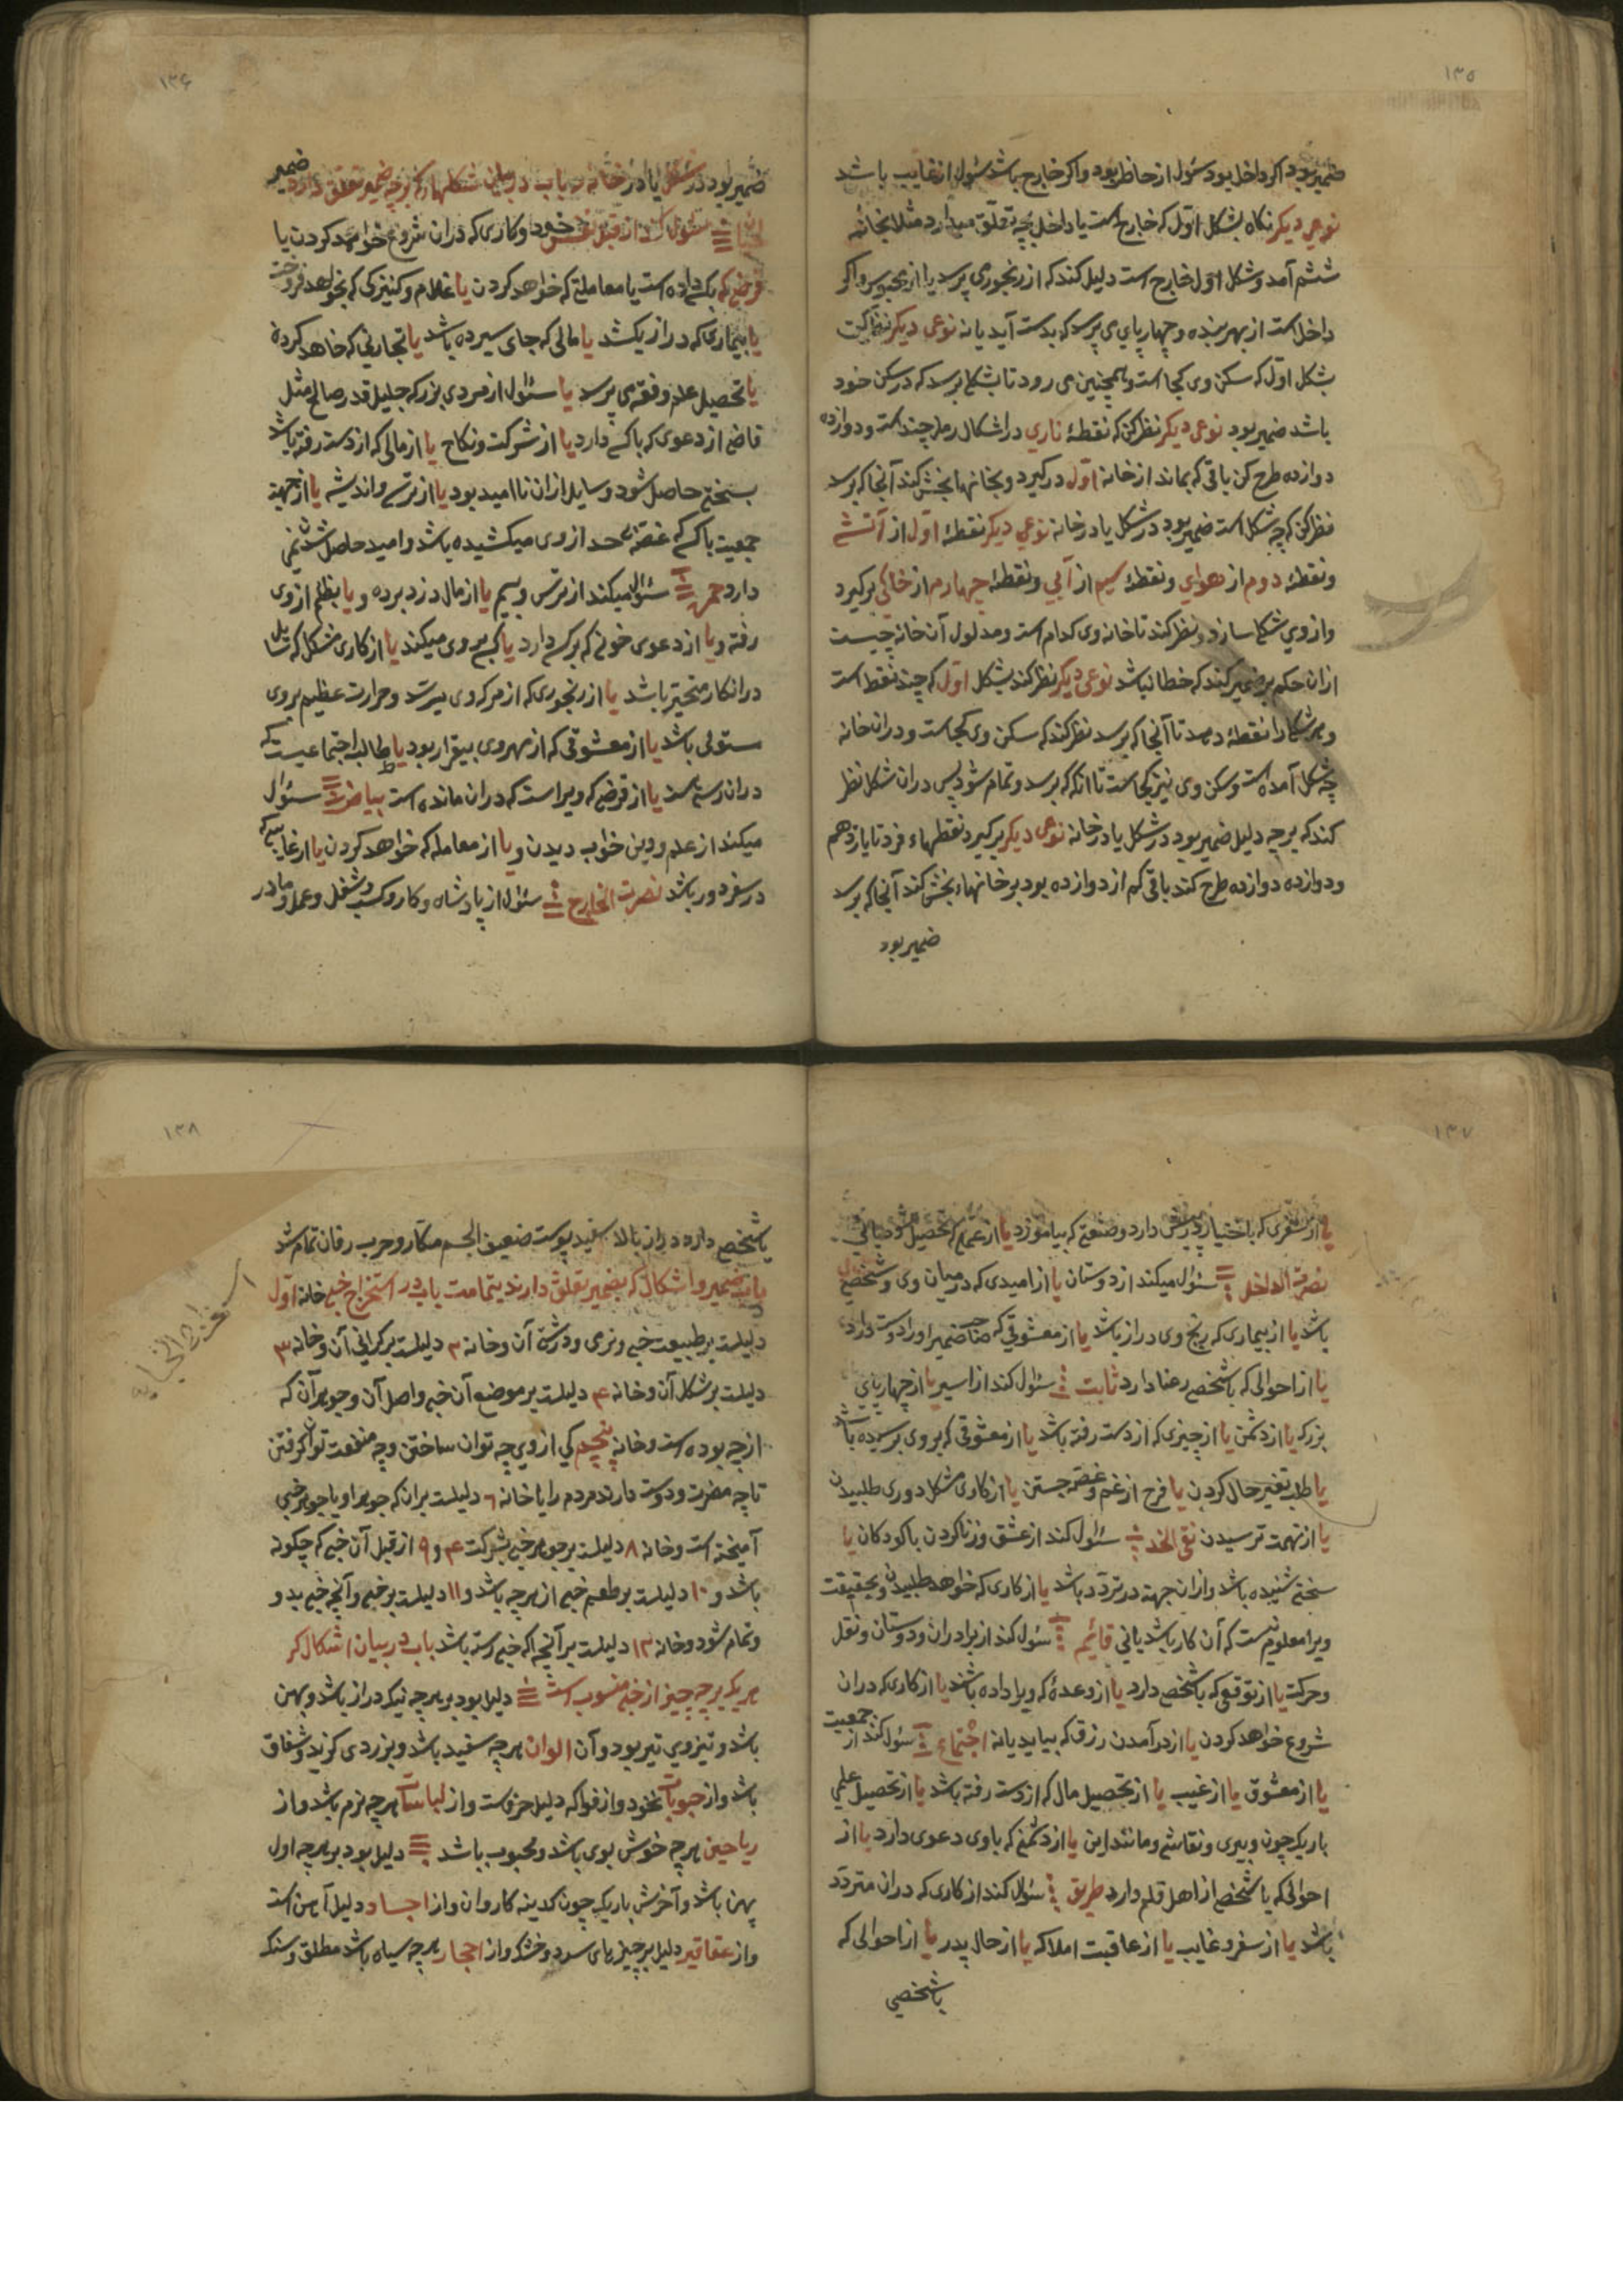 ۱۳۵
ضمیر بود اگر داخل بود سئول از حاظر بود و اگر خارج باشد سئول از غایب باشد
نوعی دیگر نکاه بشکل اوّل که خارج است یا داخل بچه تعلّق میدارد مثلا بخانهٔ
ششم آمد و شکل اول خارج است دلیل کند که از رنجوری پرسد یا از محبوس و اگر
داخل است از بهر بنده و چهارپای می پرسد که بدست آید یا نه نوعی دیگر نظر کن
بشکل اوّل که سکن وی کجا است و همچنین می رود تا بشکلی برسد که در سکن خود
باشد ضمیر بود نوعی دیگر نظر کن که نقطهٔ ناری در اشکال رمل چند است و دوازده
دوازده طرح کن باقی که بماند از خانه اوّل در کیرد و بخانها بخش کند آنجا که برسد
نظر کن که چه شکل است ضمیر بود در شکل یا در خانه نوعی دیگر نقطهٔ اوّل از آتشی
و نقطهٔ دوم از هوایی و نقطهٔ سیم از آبی و نقطهٔ چهارم از خاکی برکیرد
و از وی شکلی سازد و نظر کند تا خانه وی کدام است و مدلول آن خانه چیست
از ان حکم بر ضمیر کند که خطا نباشد نوعی دیگر نظر کند بشکل اوّل که چند نقط است
و هر شکلی را نقطهٔ دهد تا آنجا که برسد نظر کند که سکن وی کجاست و در ان خانه
چه شکل آمده است و سکن وی نیز کجاست تا آنکه که برسد و تمام شود پس در ان شکل نظر
کند که بر چه دلیل ضمیر بود در شکل یا در خانه نوعی دیگر برکیرد نقطهاء فرد تا یازدهم
و دوازده دوازده طرح کند باقی کم از دوازده بود بر خانهاء بخش کند آنجا که برسد
ضمیر بود
۱۳۶
ضمیر بود در شکل یا در خانه باب در بیان شکلها که بر چه ضمیر تعلق دارد ضمیر
سئول کند از قبل نفس خود و کاری که در ان شروع خواهد کردن یا
قرضی که بکسی داده است یا معاملتی که خواهد کردن یا غلام و کنیزکی که بخواهد فروخت
یا بیماری که دراز بکشد یا مالی که جای سپرده باشد یا تجارتی که خاهد کرد
یا تحصیل علم و فقه می پرسد یا سئول از مردی بزرک جلیل قدر صالح مثل
قاضی از دعوی که با کسی دارد یا از شرکت و نکاح یا از مالی که از دست رفته باشد
بسختی حاصل شود و سایل از ان نا امید بود یا از ترس و اندیشه یا از جهة
جمعیت با کسی که غصّه حد از وی میکشیده باشد و امید حاصل شدن نمی
دارد حمره سئول میکند از ترس و بیم یا از مال دزد برده و یا بظلم از وی
رفته و یا از دعوی خونی که بر کسی دارد یا کسی بر وی میکند یا از کاری مشکل که سایل
در انکار متحیّر باشد یا از رنجوری که از مرک وی بترسد و حرارت عظیم بر وی
مستولی باشد یا از معشوقی که از مهر وی بیقرار بود یا طالب اجتماعیست که
در ان رسته است یا از قرضی که ویرا است که در ان مانده است بیاض سئول
میکند از علم و دین خواب دیدن و یا از معامله که خواهد کردن یا از غایبی که
در سفر دور باشد نصرت الخارج سئول از پادشاه و کار و کسب و شغل و عمل و مادر
۱۳۷
یا از سفری که باختیار در پیش دارد و صنعتی که بیاموزد یا از علم که تحصیل
نصرة الداخل سئول میکند از دوستان یا از امیدی که در میان وی و شخصی
باشد یا از بیماری که رنج وی دراز باشد یا از معشوقی که صاحب ضمیر او را دوست دارد
یا از احوالی که با شخص رعنا دارد ثابت سئول کند از اسیر یا از چهارپای
بزرک یا از دشمن یا از چیزی که از دست رفته باشد یا از معشوقی که بر وی برسیده باشد
یا طلب تغییر حال کردن یا فرح از غم و غصه جستن یا از کاری مشکل دوری طلبیدن
یا از تهمت ترسیدن نقی الخد سئول کند از عشق و زنا کردن با کودکان یا
سختی شنیده باشد و از ان جهة در تردّد باشد یا از کاری که خواهد طلبیدن و بحقیقت
ویرا معلوم نیست که آن کار باشد یا نی قائم سئول کند از برادران و دوستان و نقل
و حرکت یا از توقعی که با شخص دارد یا از وعدهٔ که ویرا داده باشند یا از کاری که در ان
شروع خواهد کردن یا از در آمدن رزق که بیاید یا نه اجتماع سئول کند از جمعیت
یا از معشوق یا از غیب یا از تحصیل مال که از دست رفته باشد یا از تحصیل علمی
باریک چون دبیری و نقاشی و مانند این یا از دشمنی که با وی دعوی دارد یا از
احوالی که با شخص از اهل قلم دارد طریق سئول کند از کاری که در ان متردّد
باشد یا از سفر و غایب یا از عاقبت املاک یا از حال پدر یا از احوالی که
با شخصی
۱۳۸
با شخص دارد دراز بالا سفید پوست ضعیف الجسم مکّار و حرب رفان تمام شد
باب ضمیر و اشکال که بضمیر تعلق دارند بتمامت باب در استخراج خبی خانه اوّل
دلیلست بر طبیعت خبی و نرمی و درشتی آن و خانه ۲ دلیلست بر کرانی آن و خانه ۳
دلیلست بر شکل آن و خانه ۴ دلیلست بر موضع آن خبی و اصل آن و جوهر آن که
از چه بوده است و خانه پنجم کی از وی چه توان ساختن و چه منفعت توان کرفتن
تا چه مضرت و دوست دارند مردم را یا خانه ۶ دلیلست بر ان که جوهر او با جوهر خبی
آمیخته است و خانه ۸ دلیلست بر جوهر خبی بشرکت ۴ و ۹ از قبل آن خبی که چکونه
باشد و ۱۰ دلیلست بر طعم خبی از هر چه باشد و ۱۱ دلیلست بر خبی و آنچه خبی بدو
و تمام شود و خانه ۱۲ دلیلست بر آنچه که خبی رسته باشد باب در بیان اشکال کر
هر یک بر چه چیز از خبی منسوب است دلیل بود بر هر چه نیک دراز باشد و پهن
باشد و تیز وی تیر بود و آن الوان هر چه سفید باشد و بزردی کراید و شفاف
باشد و از حبوبات نخود و از فواکه دلیل خرفست و از لباسات هر چه نرم باشد و از
ریاحین هر چه خوش بوی باشد و محبوب باشد دلیل بود بر هر چه اول
پهن باشد و آخرش باریک چون کدینه کاروان و از اجساد دلیل آهن است
و از عقاقیر دلیل بر چیزهای سرد و خشک و از احجار هر چه سیاه باشد مطلق و سنک
استخراج الخبایا